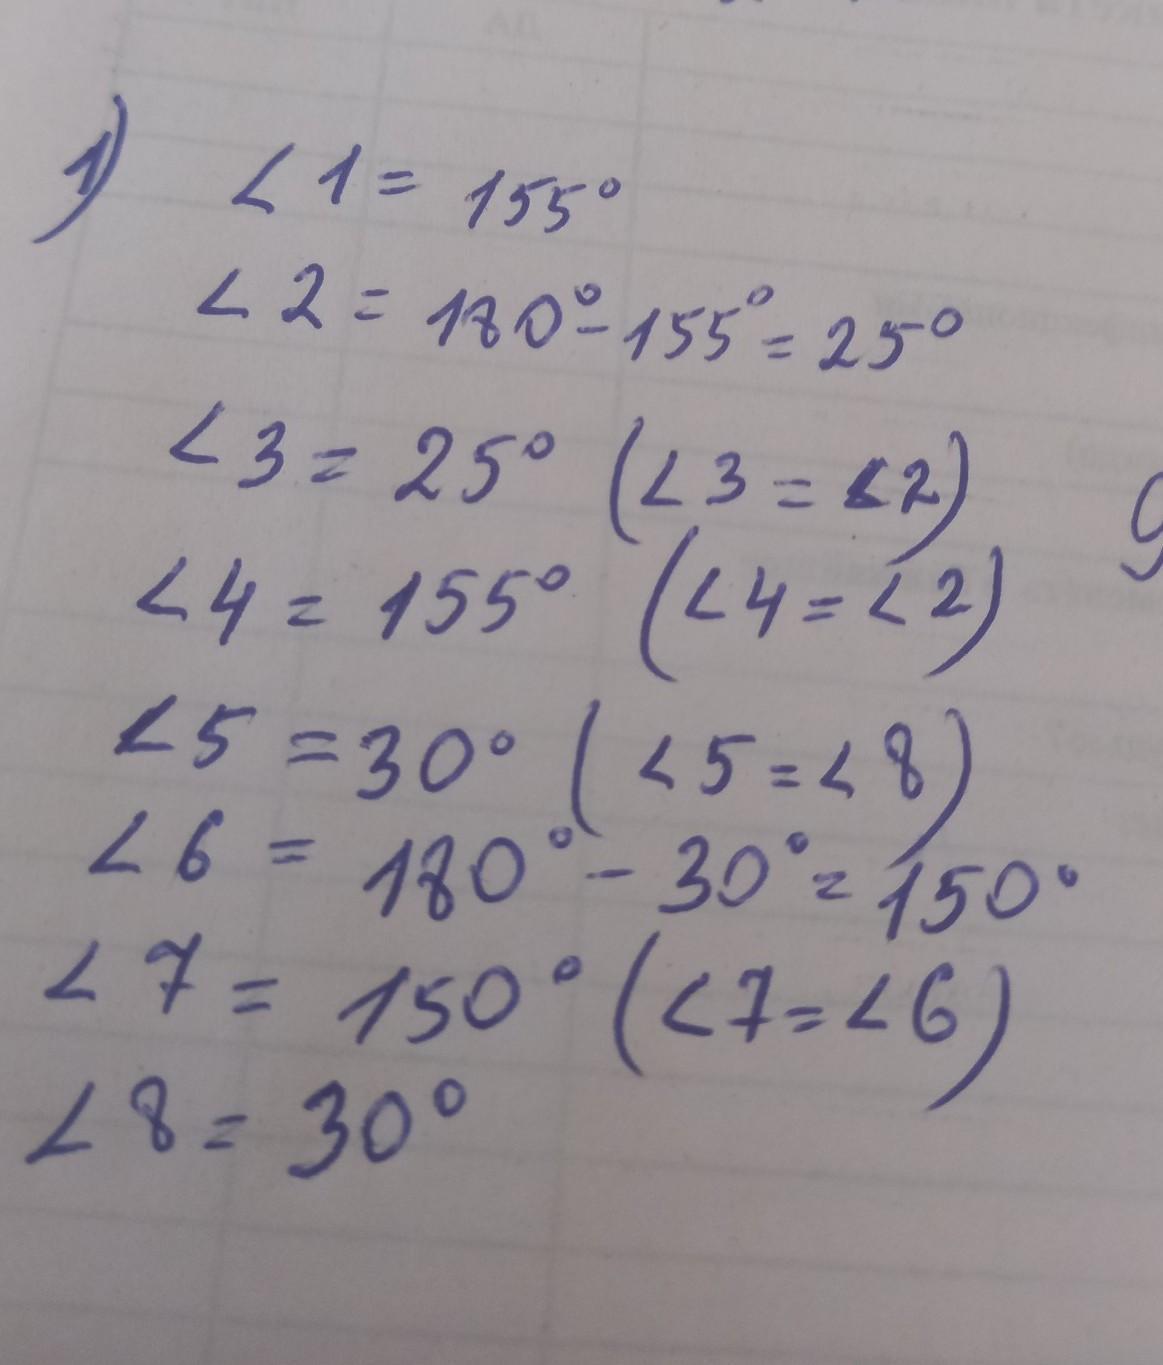 1) ∠1 = 155°
∠2 = 180° - 155° = 25°
∠3 = 25° (∠3 = ∠2)
∠4 = 155° (∠4 = ∠2)
∠5 = 30° (∠5 = ∠8)
∠6 = 180° - 30° = 150°
∠7 = 150° (∠7 = ∠6)
∠8 = 30°